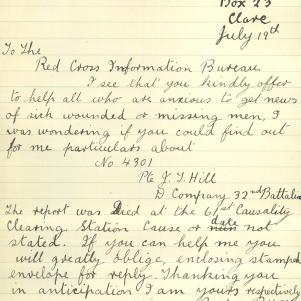 Box 23
Clare
July 19th
To The
Red Cross Information Bureau
I see that you kindly offer
to help all who are anxious to get news
of sick wounded or missing men, I
was wondering if you could find out
for me particulars about
No 4301
Pte J. T. Hill
D Company 32nd Battalion
The report was Died at the 61st Causality
Clearing Station Cause or date not
stated. If you can help me you
will greatly oblige, enclosing stamped
envelope for reply. Thanking you
in anticipation I am yours respectively